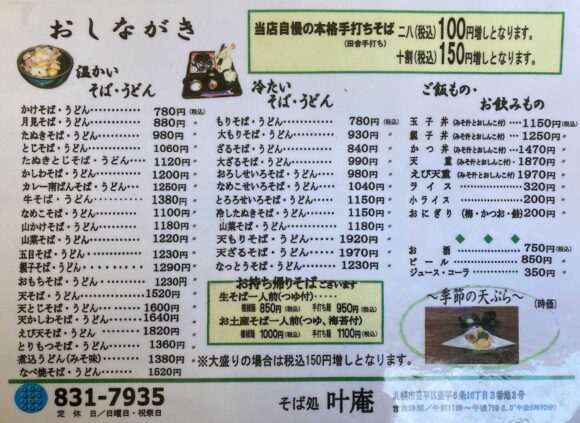 おしながき
当店自慢の本格手打ちそば
(田舎手打ち)
二八(税込)100円増しとなります。
十割(税込)150円増しとなります。
温かい
そば・うどん
かけそば・うどん 780円(税込)
月見そば・うどん 880円 〃
たぬきそば・うどん 980円 〃
とじそば・うどん 1060円 〃
たぬきとじそば・うどん 1120 〃
かしわそば・うどん 1200円 〃
カレー南ばんそば・うどん 1250円 〃
牛そば・うどん 1380円 〃
なめこそば・うどん 1100円 〃
山かけそば・うどん 1180円 〃
山菜そば・うどん 1220円 〃
五目そば・うどん 1230円 〃
親子そば・うどん 1290円 〃
おもちそば・うどん 1230円 〃
天そば・うどん 1520円 〃
天とじそば・うどん 1600円 〃
天かしわそば・うどん 1640円 〃
えび天そば・うどん 1820円 〃
とりもつそば・うどん 1360円 〃
煮込うどん(みそ味) 1380円 〃
なべ焼そば・うどん 1520円 〃
冷たい
そば・うどん
もりそば・うどん 780円(税込)
大もりそば・うどん 930円 〃
ざるそば・うどん 840円 〃
大ざるそば・うどん 990円 〃
おろしせいろそば・うどん 950円 〃
なめこせいろそば・うどん 1040円 〃
とろろせいろそば・うどん 1150円 〃
冷したぬきそば・うどん 1150円 〃
山菜そば・うどん 1180円 〃
天もりそば・うどん 1920円 〃
天ざるそば・うどん 1970円 〃
なっとうそば・うどん 1230円 〃
お持ち帰りそばございます
生そば一人前(つゆ付)
機械麺 850円(税込) 手打ち麺 950円(税込)
お土産そば一人前(つゆ、海苔付)
機械麺 1000円(税込) 手打ち麺 1100円(税込)
※大盛りの場合は税込150円増しとなります。
ご飯もの・
お飲みもの
玉子丼(みそ汁とおしんこ付) 1150円(税込)
親子丼(みそ汁とおしんこ付) 1250円 〃
かつ丼(みそ汁とおしんこ付) 1470円 〃
天重(みそ汁とおしんこ付) 1870円 〃
えび天重(みそ汁とおしんこ付) 1970円 〃
ライス 320円 〃
小ライス 200円 〃
おにぎり(梅・かつお・鮭) 200円 〃
お酒 750円(税込)
ビール 850円 〃
ジュース・コーラ 350円 〃
～季節の天ぷら～ (時価)
831-7935
定休日/日曜日・祝祭日
そば処 叶庵
札幌市豊平区豊平6条10丁目3番地3号
営業時間/午前11時～午後7時(L.O.午後6時50分)